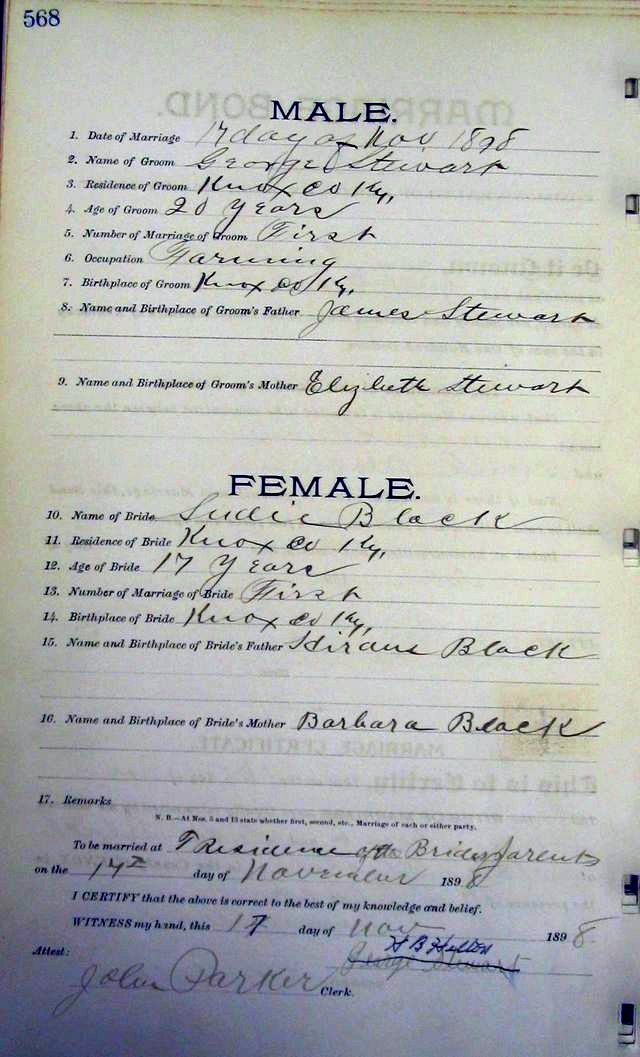 568
MALE.
1. Date of Marriage 17 day of Nov 1898
2. Name of Groom George Stewart
3. Residence of Groom Knox co Ky,
4. Age of Groom 20 Years
5. Number of Marriage of Groom First
6. Occupation Farming
7. Birthplace of Groom Knox co Ky,
8. Name and Birthplace of Groom's Father James Stewart
9. Name and Birthplace of Groom's Mother Elizbeth Stewart
FEMALE.
10. Name of Bride Sudie Black
11. Residence of Bride Knox co Ky,
12. Age of Bride 17 Years
13. Number of Marriage of Bride First
14. Birthplace of Bride Knox co Ky,
15. Name and Birthplace of Bride's Father Hiram Black
16. Name and Birthplace of Bride's Mother Barbara Black
17. Remarks
N. B.—At Nos. 5 and 13 state whether first, second, etc., Marriage of each or either party.
To be married at Residence of the Brides Parents
on the day of November 1898
I CERTIFY that the above is correct to the best of my knowledge and belief.
WITNESS my hand, this 17 day of Nov 1898
H B Helton
George Stewart
Attest:
John Parker Clerk.